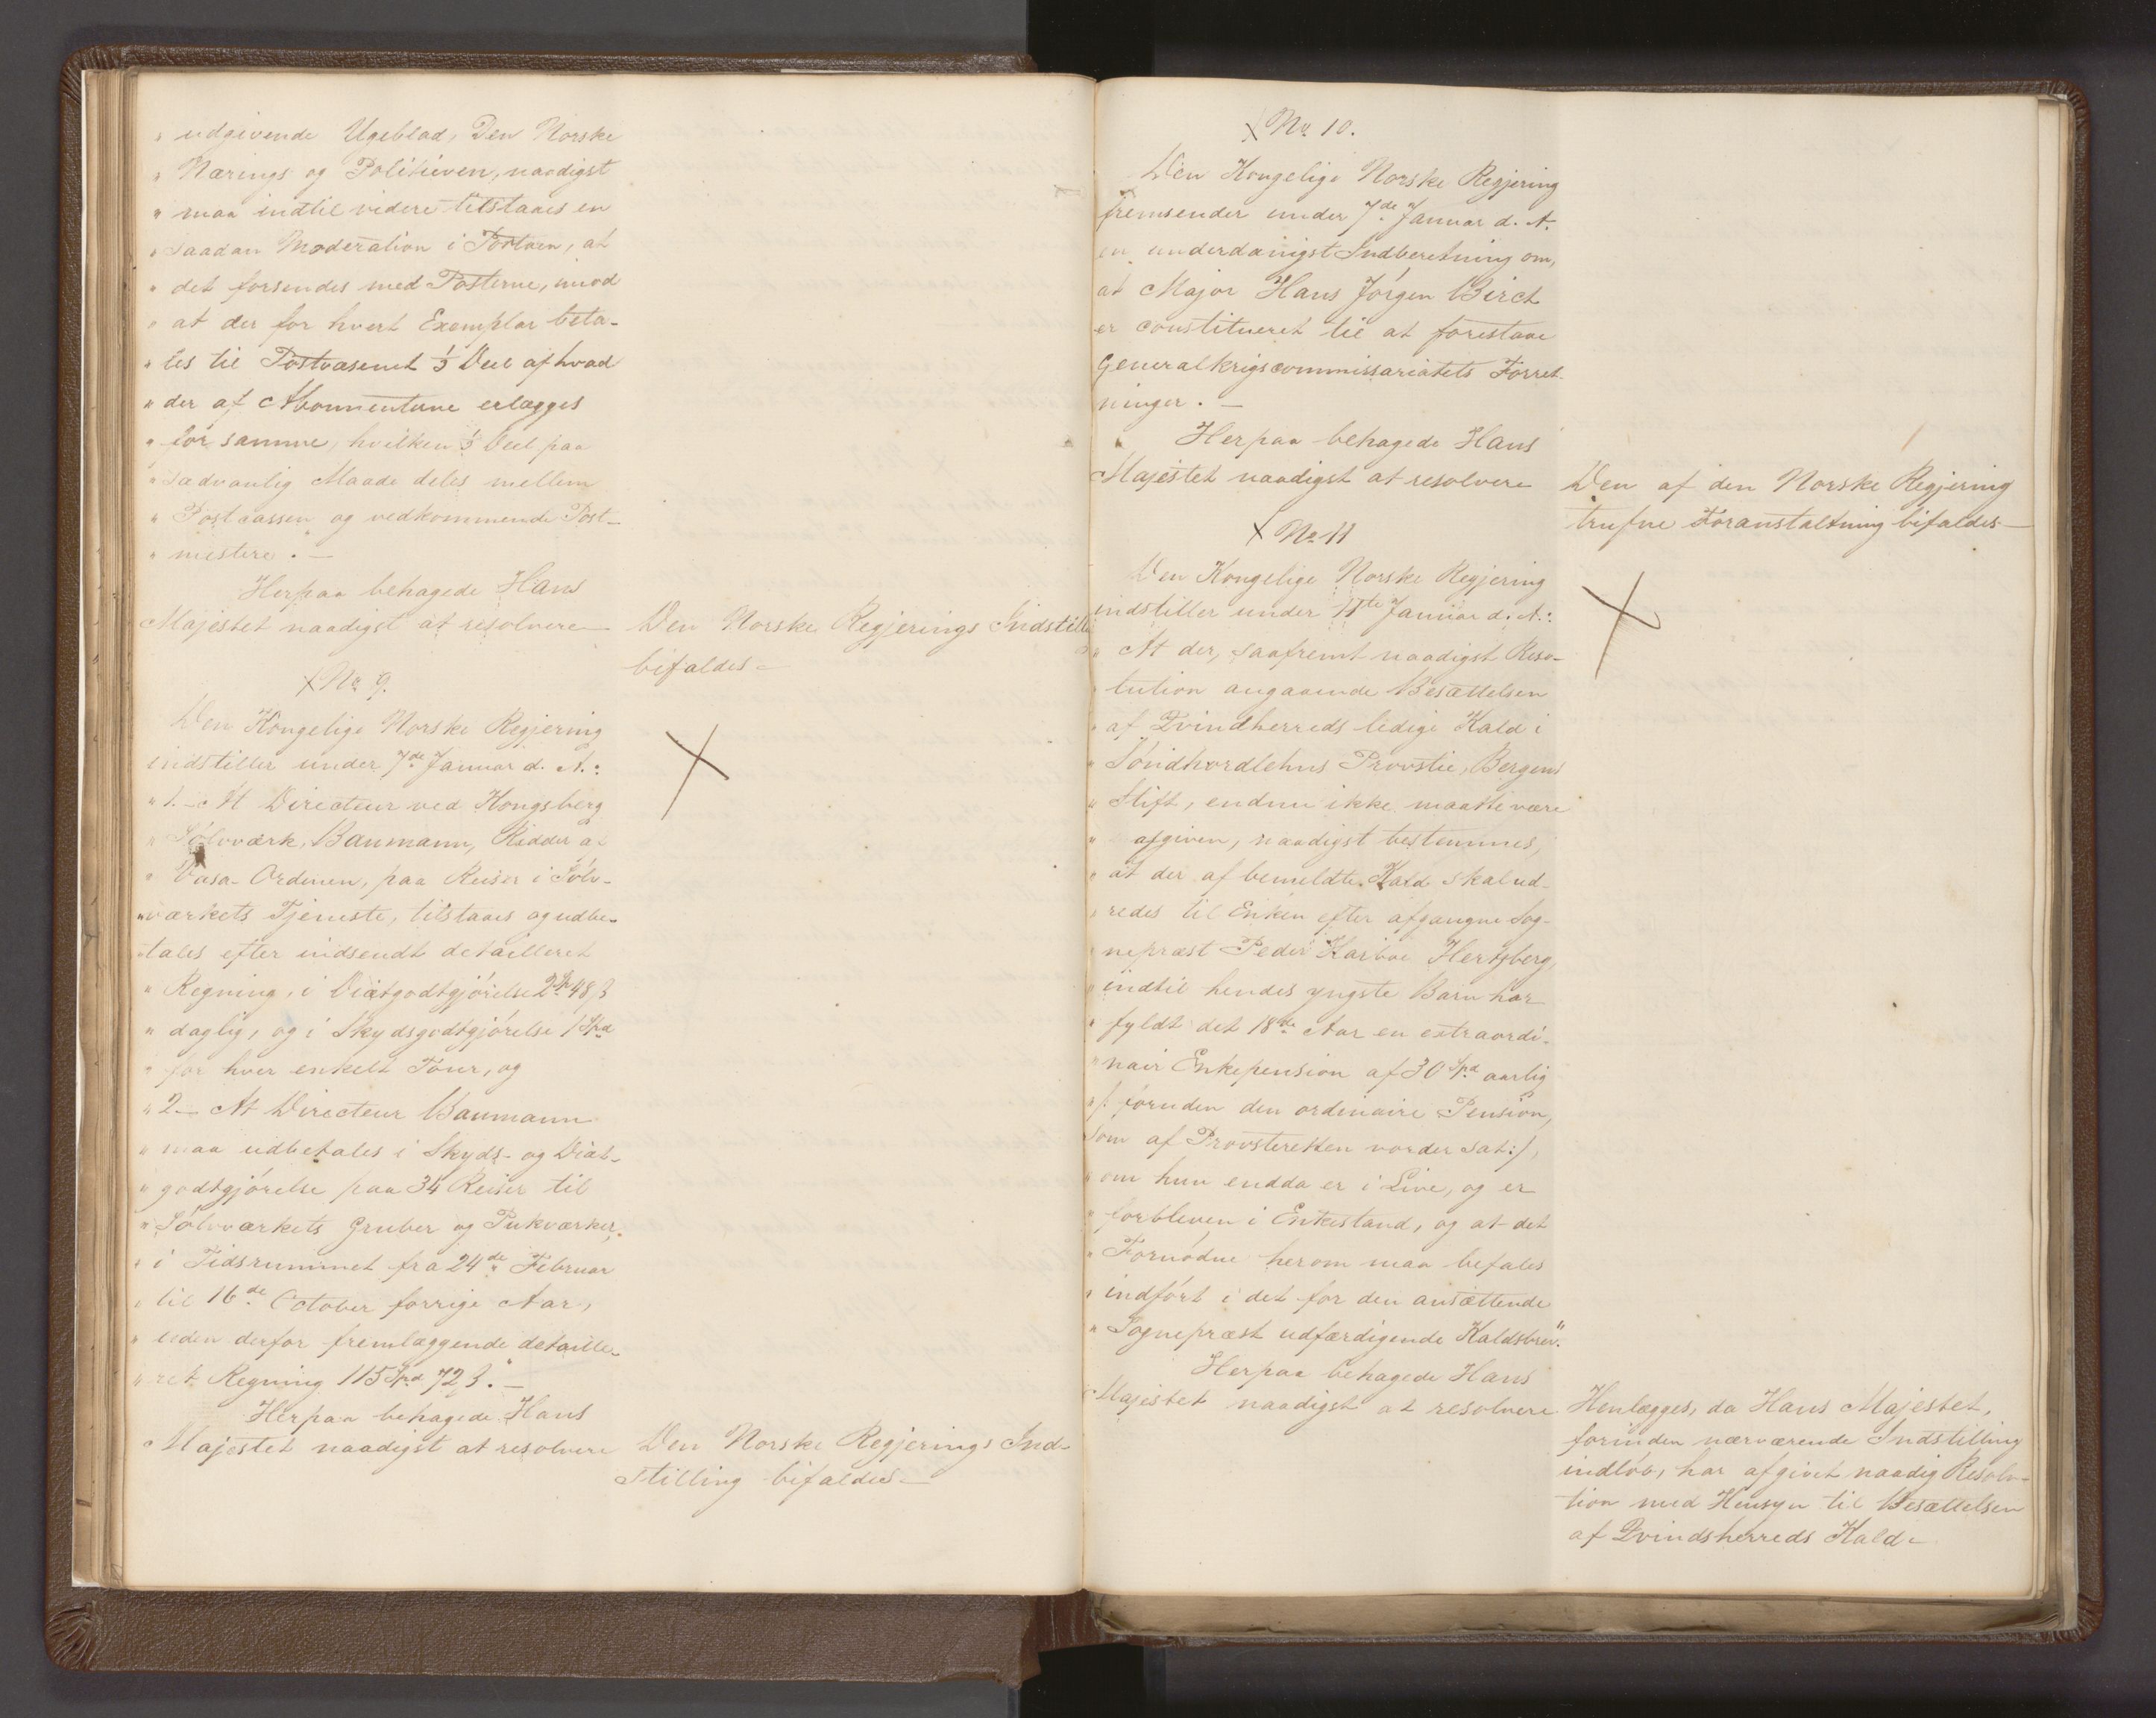 " udgivende Ugeblad, Den Norske
" Nærings og Politieven, naadigst
" maa indtil videre tilstaaes en
" saadan Moderation i Portoen, at
" det forsendes med Posterne, mod
" at der for hvert Exemplar beta-
" les til Postvæsenet ⅓ Deel af hvad
" der af Abonnenterne erlægges
" for samme, hvilken ⅓ Deel paa
" sædvanlig Maade deles mellem
" Postcassen og vedkommende Post-
" mestere. —
Herpaa behagede Hans
Majestet naadigst at resolvere —
Den Norske Regjerings Indstill
bifaldes —
X No 9.
Den Kongelige Norske Regjering
indstiller under 7de Januar d. A.:
" 1. — At Directeur ved Kongsberg
" Sølvværk, Baumann, Ridder af
" Vasa-Ordenen, paa Reiser i Sølv-
" værkets Tjeneste, tilstaaes og udbe-
" tales efter indsendt detailleret
" Regning, i Diætgodtgjørelse 2 48 ß
" daglig, og i Skydsgodtgjørelse 1 Spd
" for hver enkelt Tour, og
" 2 — At Directeur Baumann
" maa udbetales i Skyds- og Diæt-
" godtgjørelse paa 34 Reiser til
" Sølvværkets Gruber og Pukværker,
" i Tidsrummet fra 24de Februar
" til 16de October forrige Aar,
" uden derfor fremlæggende detaille-
" ret Regning 115 Spd 72 ß." —
Herpaa behagede Hans
Majestet naadigst at resolvere
Den Norske Regjerings Ind-
stilling bifaldes —
X No. 10.
Den Kongelige Norske Regjering
fremsender under 7de Januar d. A.
en underdanigst Indberetning om,
at Major Hans Jørgen Birch
er constitueret til at forestaae
Generalkrigscommissariatets Forret-
ninger. —
Herpaa behagede Hans
Majestet naadigst at resolvere
Den af den Norske Regjering
trufne Foranstaltning bifaldes —
X No 11
Den Kongelige Norske Regjering
indstiller under 11te Januar d. A.:
" At der, saafremt naadigst Reso-
" lution angaaende Besættelsen
" af Qvindherreds ledige Kald i
" Søndhordlehns Provstie, Bergens
" Stift, endnu ikke maatte være
" afgiven, naadigst bestemmes,
" at der af bemeldte Kald skal ud-
" redes til Enken efter afgangne Sog-
" nepræst Peder Harboe Hertzberg,
" indtil hendes yngste Barn har
" fyldt det 18de Aar en extraordi-
" nair Enkepension af 30 Spd aarlig
" /: foruden den ordinaire Pension,
som af Provsteretten vorder sat :/,
" om hun endda er i Live, og er
" forbleven i Enkestand, og at det
" Fornødne herom maa befales
" indført i det for den ansættende
" Sognepræst udfærdigende Kaldsbrev."
Herpaa behagede Hans
Majestet naadigst at resolvere
Henlægges, da Hans Majestet,
forinden nærværende Indstilling
indløb, har afgivet naadig Resolu-
tion med Hensyn til Besættelsen
af Qvindsherreds Kald —